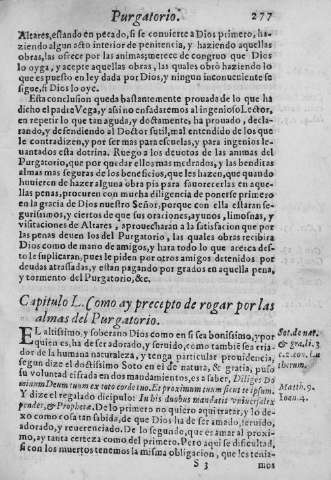 Purgatorio. 277
Altares, estando en pecado, si se conuierte a Dios primero, ha-
ziendo algun acto interior de penitencia, y haziendo aquellas
obras, las ofrece por las animas; merece de congruo que Dios
lo oyga, y acepte aquellas obras, las quales obrò haziendo lo
que es puesto en ley dada por Dios, y ningun inconueniente se
sigue, si Dios lo oye.
Esta conclusion queda bastantemente prouada de lo que ha
dicho el padre Vega, y assi no enfadaremos al ingenioso Lector,
en repetir lo que tan aguda, y doctamente, ha prouado, decla-
rando, y defendiendo al Doctor sutil, mal entendido de los que
le contradizen, y por ser mas para escuelas, y para ingenios le-
uantados esta dotrina. Ruego a los deuotos de las animas del
Purgatorio, que por quedar ellos mas medrados, y las benditas
almas mas seguras de los beneficios, que les hazen, que quando
huuieren de hazer alguna obra pia para fauorecerlas en aque-
llas penas, procuren con mucha diligencia de ponerse primero
en la gracia de Dios nuestro Señor, porque con ella estaràn se-
gurissimos, y ciertos de que sus oraciones, ayunos, limosnas, y
visitaciones de Altares, aprouecharàn a la satisfacion que por
las penas deuen los del Purgatorio, las quales obras recibira
Dios como de mano de amigos, y hara todo lo que acerca des-
to le suplicaran, pues le piden por otros amigos detenidos por
deudas atrassadas, y estan pagando por grados en aquella pena,
y tormento del Purgatorio, &c.
Capitulo L. Como ay precepto de rogar por las
almas del Purgatorio.
EL altissimo, y soberano Dios como en si sea bonissimo, y por
quien es, ha de ser adorado, y seruido, como tambien sea cria-
dor de la humana naturaleza, y tenga particular prouidencia,
segun dize el doctissimo Soto en el de natura, & gratia, puso
su voluntad cifrada en dos mandamientos, es a saber, Diliges Do
minum Deum tuum ex toto corde tuo. Et proximum tuum sicut te ipsum.
Y dize el regalado dicipulo: In his duobus mandatis vniuersa lex
pendet, & Prophetæ. De lo primero no quiero aqui tratar, y lo de-
xo como cosa tan sabida, de que Dios ha de ser amado, seruido,
adorado, y reuerenciado. De lo segundo, que es amar al proxi-
mo, ay tanta certeza como del primero. Pero aqui se dificultad,
si con los muertos tenemos la misma obligacion, que les tenia-
S 3 mos
Sot. de nat.
& grat. li. 3
c. 2. con. Lu
therum.
Matth. 9.
Ioan. 4.